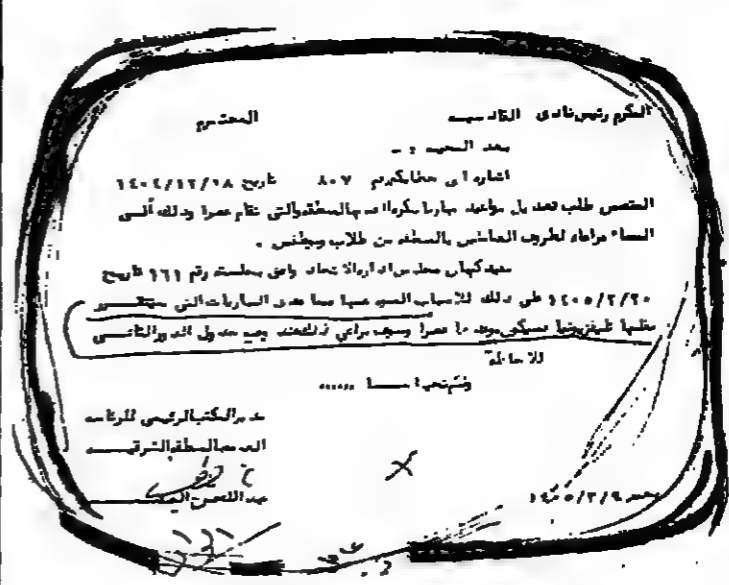 المكرم رئيس نادى القادسيه المحترم
بعد التحيه : -
اشاره الى خطابكم رقم ٨٠٧ تاريخ ١٤٠٤/١٢/١٨
المتضمن طلب تعديل مواعيد مباريات كرة بالمنطقه والتى تقام عصرا وذلك ألـى
المساء مراعاه لظروف العاملين بالمنطقه من طلاب وموظفين .
نفيدكم بأن مجلس اداره الاتحاد وافق بجلسته رقم ١٦١ تاريخ
١٤٠٥/٢/٢٠ على ذلك للاسباب فيما عدى المباريات التى سيتقـــرر
نقلها تليفزيونيا فسيكون موعدها عصرا وسوف يراعي ذلك عند وضع جدول الدور الثانـــى
للاحاطه
ولكم تحياتـــــــا ،،،،،،
مدير المكتب الرئيسى للرئاسه
العامه بالمنطقه الشرقيـــــه
عبدالله
١٤٠٥/٣/٩